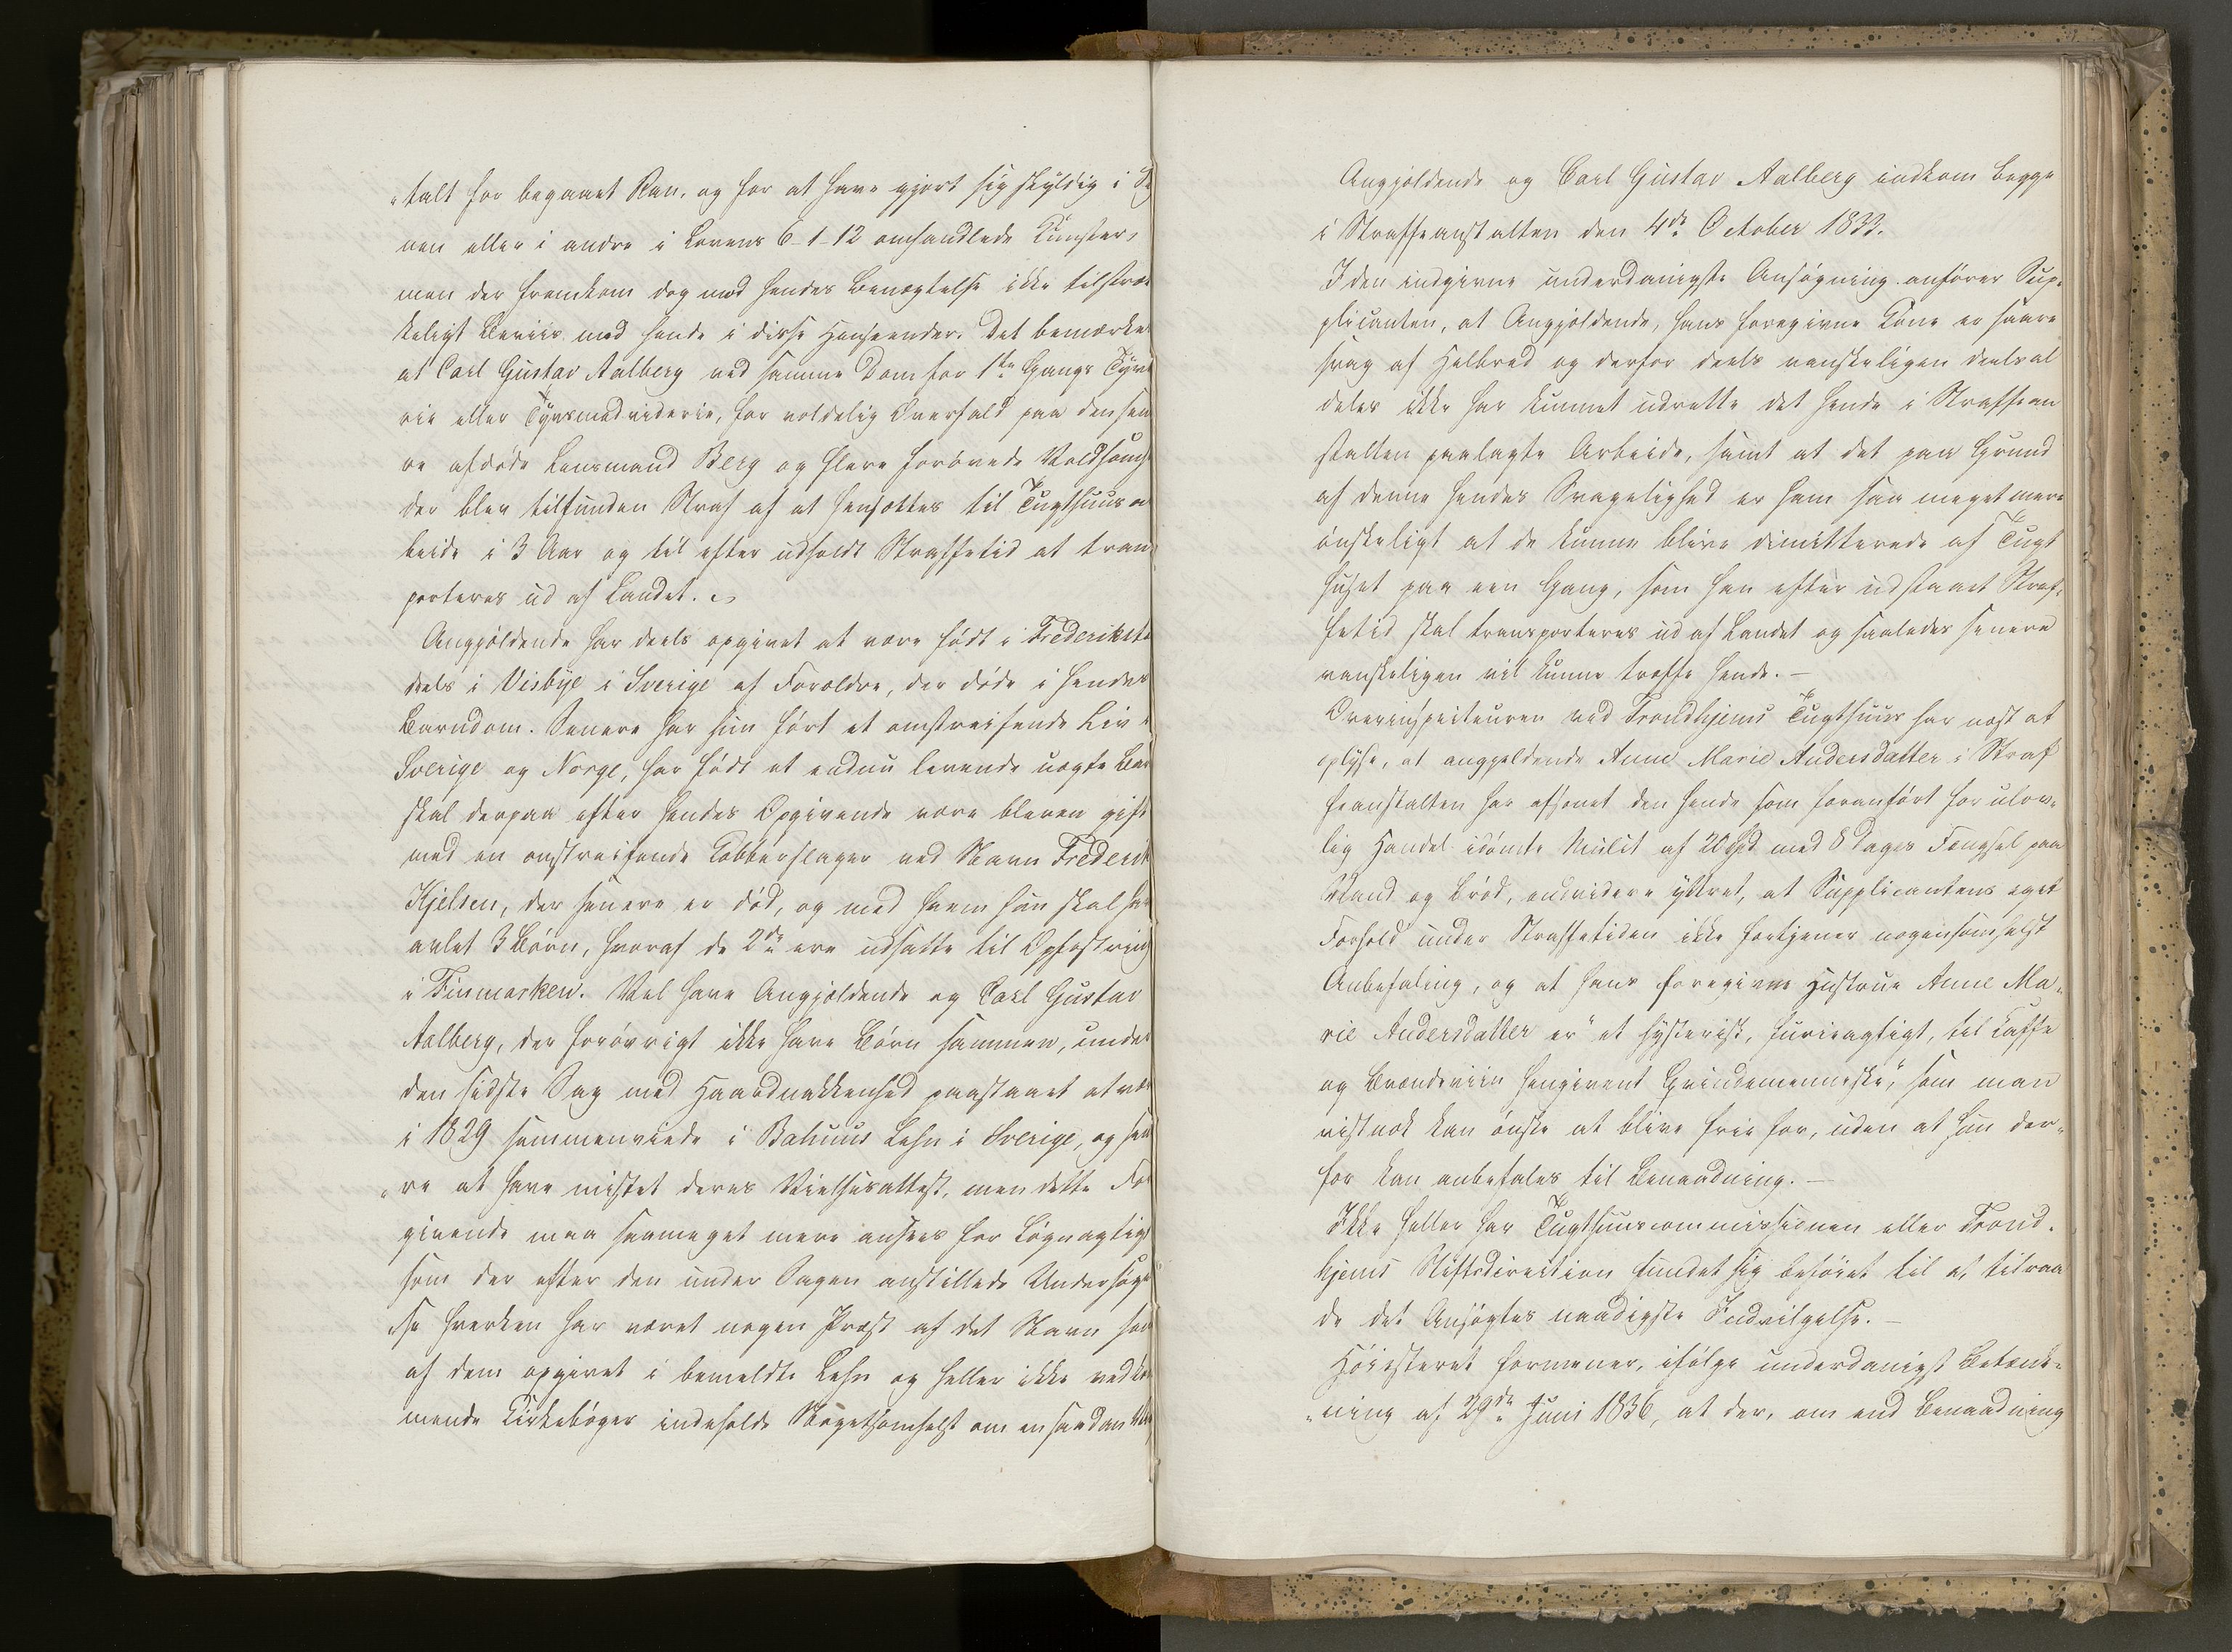 "talt for begaaet Ran, og for at have gjort sig skyldig i
nen eller i andre i Lovens 6-1-12 omhandlede Kunster,
men der fremkom dog mod hendes Benægtelse ikke tilstræk
keligt Beviis mod hende i disse Henseender. Det bemærkes
at Carl Gustav Aalberg ved samme Dom for 1ste Gangs Tyve
rie eller Tyvsmedviderie, for voldelig Overfald paa den sen
ere afdøde Lensmand Berg og flere forøvede Voldsom
der blev tilfunden Straf af at hensættes til Tugthuusar
beide i 3 Aar og til efter udholdt Straffetid at trans
porteres ud af Landet.
Angjældende har deels opgivet at være født i Frederikst
deels i Visbye i Sverige af Forældre, der døde i hendes
Barndom. Senere har hun ført et omstreifende Liv i
Sverige og Norge, har født et endnu levende uægte Bar
skal derpaa efter hendes Opgivende være bleven gift
med en omstreifende Kobberslager ved Navn Frederik
Hjelsen, der senere er død, og med hvem hun skal ha
avlet 3 Børn, hvoraf de 2de ere udsatte til Opfostring
i Finmarken. Vel have Angjældende og Carl Gustav
Aalberg, der forøvrigt ikke have Børn sammen, under
den sidste Sag med Haardnakkenhed paastaaet at væ
i 1829 sammenviede i Bahuus Lehn i Sverige, og sen
"re at have mistet deres Vielsesattest, men dette Fore
givende maa saameget mere ansees for Løgnagtigt
som der efter den under Sagen anstillede Undersøgel
"se hverken har været nogen Præst af det Navn som
af dem opgivet i bemeldte Lehn og heller ikke vedkom
mende Kirkebøger indeholde Nogetsomhelst om en saadan
Angjældende og Carl Gustav Aalberg indkom begge
i Straffeanstalten den 4de October 1833.
I den indgivne underdanigste Ansøgning anfører Sup=
plicanten, at Angjældende, hans foregivne Kone er saare
svag af Helbred og derfor deels vanskeligen deels al
deles ikke har kunnet udrette det hende i Straffean
stalten paalagte Arbeide, samt at det paa Grund
af denne hendes Svagelighed er ham saa meget mere
ønskeligt at de kunne blive dimitterede af Tugt
huset paa een Gang, som han efter udstaaet Straf=
fetid skal transporteres ud af Landet og saaledes senere
vanskeligen vil kunne træffe hende. —
Overinspecteuren ved Trondhjems Tugthuus har næst at
oplyse, at angjeldende Anne Marie Andersdatter i Straf
feanstalten har afsonet den hende som foranført for ulov=
lig Handel idømte Mulct af 20 Spd med 8 Dages Fængsel paa
Vand og Brød, endvidere yttret, at Supplicantens eget
Forhold under Straffetiden ikke fortjener nogensomhelst
Anbefaling, og at hans foregivne Hustrue Anne Ma=
rie Andersdatter er "et hysterisk, furieagtigt, til Kaffe
og Brændeviin hengivent Qvindemenneske," som man
vistnok kan ønske at blive frie for, uden at hun der=
for kan anbefales til Benaadning. —
Ikke heller har Tugthuuscommissionen eller Trond=
hjems Stiftsdirection fundet sig beføiet til at tilraa
de det Ansøgtes naadigste Indvilgelse. —
Høiesteret formener, ifølge underdanigst Betænk=
"ning af 29de Juni 1836, at der, om end Benaadning